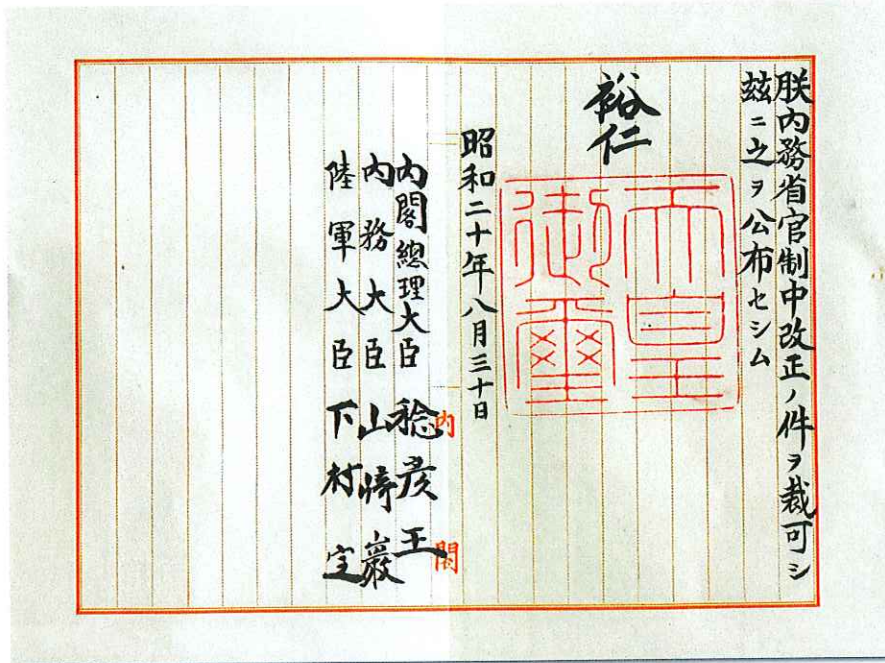 朕内務省官制中改正ノ件ヲ裁可シ
茲ニ之ヲ公布セシム
裕仁
天皇
御璽
昭和二十年八月三十日
内閣
内閣總理大臣 稔彦王
内務大臣 山﨑巖
陸軍大臣 下村定